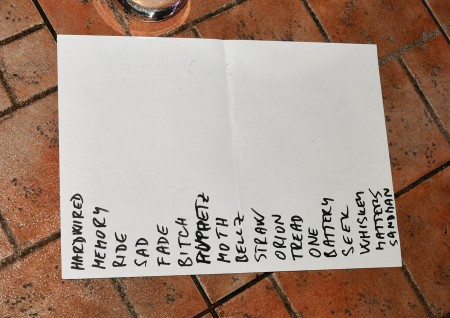 HARDWIRED
MEMORY
RIDE
SAD
FADE
BITCH
PUPPETZ
MOTH
BELLZ
STRAW
ORION
TREAD
ONE
BATTERY
SEEK
WHISKEY
MATTERS
SANDMAN